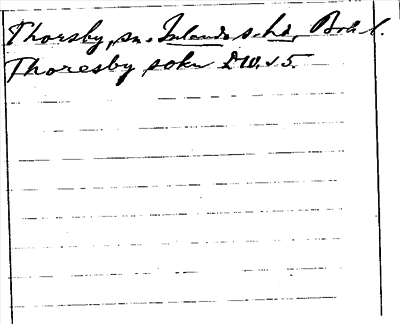 Thorsby, sn. Inlands s. hd, Boh l.
Thoresby sokn DW. s 5.